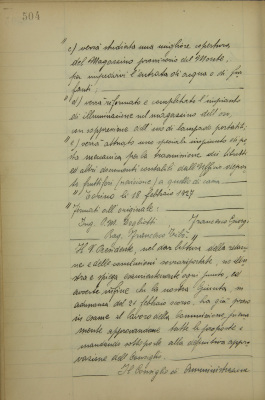 504
" c) verrà studiata una migliore copertura
del Magazzino prominario del Monte,
per impedirvi l'entrata di acqua e di fur
fanti;
" d) verrà riformato e completato l'impianto
di illuminazione nel magazzino dell'oro,
con soppressione all'uso di lampade portatili;
" e) verrà attuato uno speciale impianto di po
sta meccanica per la trasmissione dei libretti
ed altri documenti contabili dall'Ufficio
fruttiferi a quello di cassa
" Torino li 18 febbraio 1927
" Firmati all'originale:
Ing. Francesco Giorgi
Rag. Francesco "
Il V. Presidente, nel dar lettura della relazio
ne e delle conclusioni sovrariportate, ne illu
stra e spiega esaurientemente ogni punto, ed
avverte infine che la nostra Giunta, in
adunanza del 21 febbraio corso, ha già preso
in esame il lavoro della Commissione, piena
mente approvandone tutte le proposte e
mandando sottoporle alla definitiva appro
vazione del Consiglio.
Il Consiglio di Amministrazione